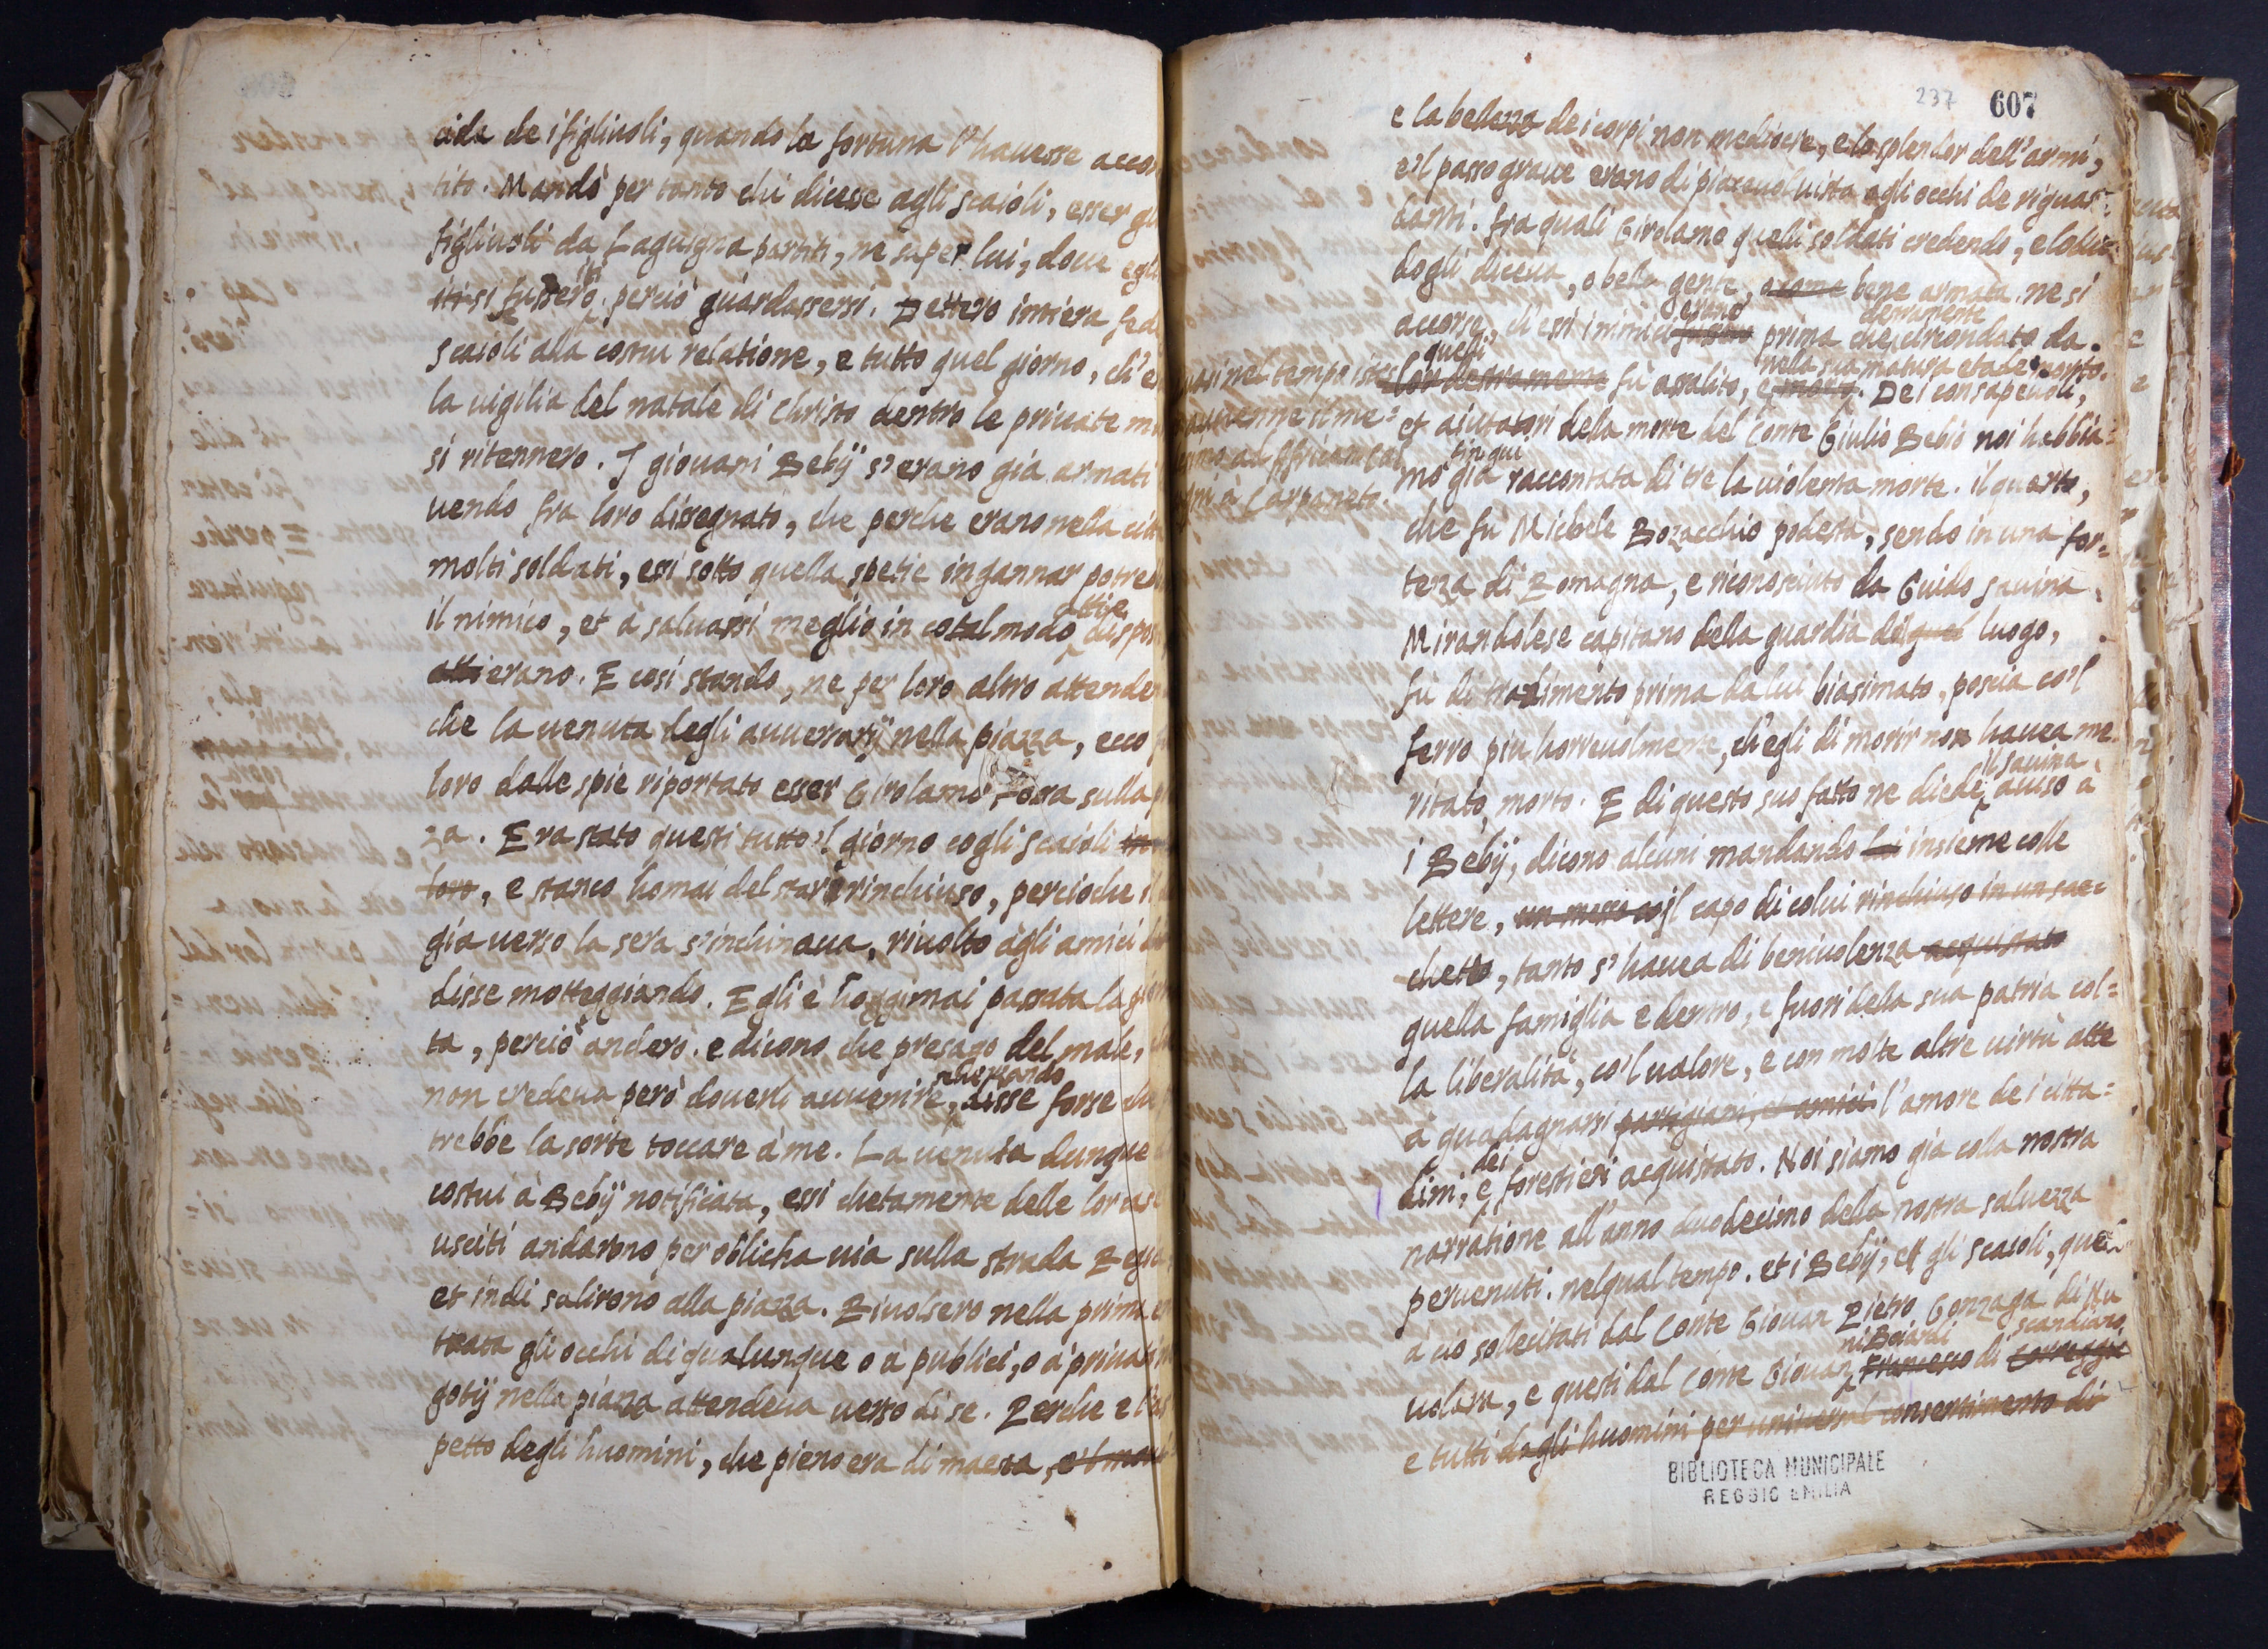 cida de i figliuoli, quando la fortuna l'hauesse accon
tito. Mandò per tanto chi dicesse agli scaioli, esser gli
figliuoli da partiti, ne saper lui, doue egli
iti si fussero iti. perciò guardassersi. Dettero intiera fede
scaioli alla costui relatione, e tutto quel giorno, ch'e
la uigilia del natale di Christo dentro le priuate m
si ritennero. I giouani Bebij s'erano già armati
uendo fra loro disegnato, che perche erano nella citt
molti soldati, essi sotto quella spetie ingannar potre
il nimico, et à saluarsi meglio in cotal modo attije dispos
atti erano. E così stando, ne per loro altro attende
che la uenuta degli auuersarij nella piazza, ecco
loro dalle spie riportato esser Girolamo sulla
za. Era stato questi tutto 'l giorno cogli Scaioli
loro, e stanco homai del star rinchiuso, percioche il
già uerso la sera s'inchinaua, riuolto agli amici
disse motteggiando. Egli è hoggimai passata la gior
ta, perciò anderò. e dicono, che presago del male,
non credeua però douerli auuenire, scherzando disse forse che
trebbe la sorte toccare à me. La uenuta dunque
costui à Bebij notificata, essi chetamente delle lor case
usciti andarono per oblicha uia sulla strada Regia
et indi salirono alla piazza. Riuolsero nella prima en
trata gli occhi di qualunque o à publici, o à priuati n
gotij nella piazza attendeua uerso di se. Perche e l'as
petto degli huomini, che pieno era di maestà, e'l mou
237 607
e la bellezza de i corpi non mediocre, e lo splendor dell'armi,
e'l passo graue erano di piaceuol uista agli occhi de riguar=
danti. fra quali Girolamo quelli soldati credendo, e lodan
dogli diceua, o bella gente, o come bene armata. ne si
accorse, ch'essi inimici erano prima che destramente circondato da
quelli lor destramente fù assalito, e nella sua matura etade morto. De i consapeuoli,
et aiutatori della morte del Conte Giulio Bebio noi habbia=
mo già fin qui raccontata di tre la uiolenta morte. il quarto,
che fù Michele Bozacchio podestà, sendo in una for=
teza di Romagna, e riconosciuto da Guido Sauina
Mirandolese capitano della guardia di quel luogo,
fù di tradimento prima da lui biasimato, poscia co'l
ferro piu horreuolmente, ch'egli di morir non hauea me
ritato, morto. E di questo suo fatto ne diede il Sauina auiso à
i Bebij, dicono alcuni mandando insieme colle
lettere, un messo co il capo di colui rinchiuso in un sac=
chetto, tanto s'hauea di beniuolenza acquistato
quella famiglia e dentro, e fuori della sua patria col=
la liberalità, co'l ualore, e con molte altre uirtù atte
à guadagnarsi partegiani, et amici l'amore de i citta=
dini, e dei forestieri acquistato. Noi siamo già colla nostra
narratione all'anno duodecimo della nostra saluezza
peruenuti. nel qual tempo. et i Bebij, et gli Scaioli, quei
à ciò sollecitati dal Conte Giouan Pietro Gonzaga di Nu
uolara, e questi dal Conte Giouan ni Boiardi Francesco di Scandiano, Correggio
e tutti dagli huomini per uniuersal consentimento di
uasi nel tempo istes
auuenne il me=
BIBLIOTECA MUNICIPALE
REGGIO EMILIA